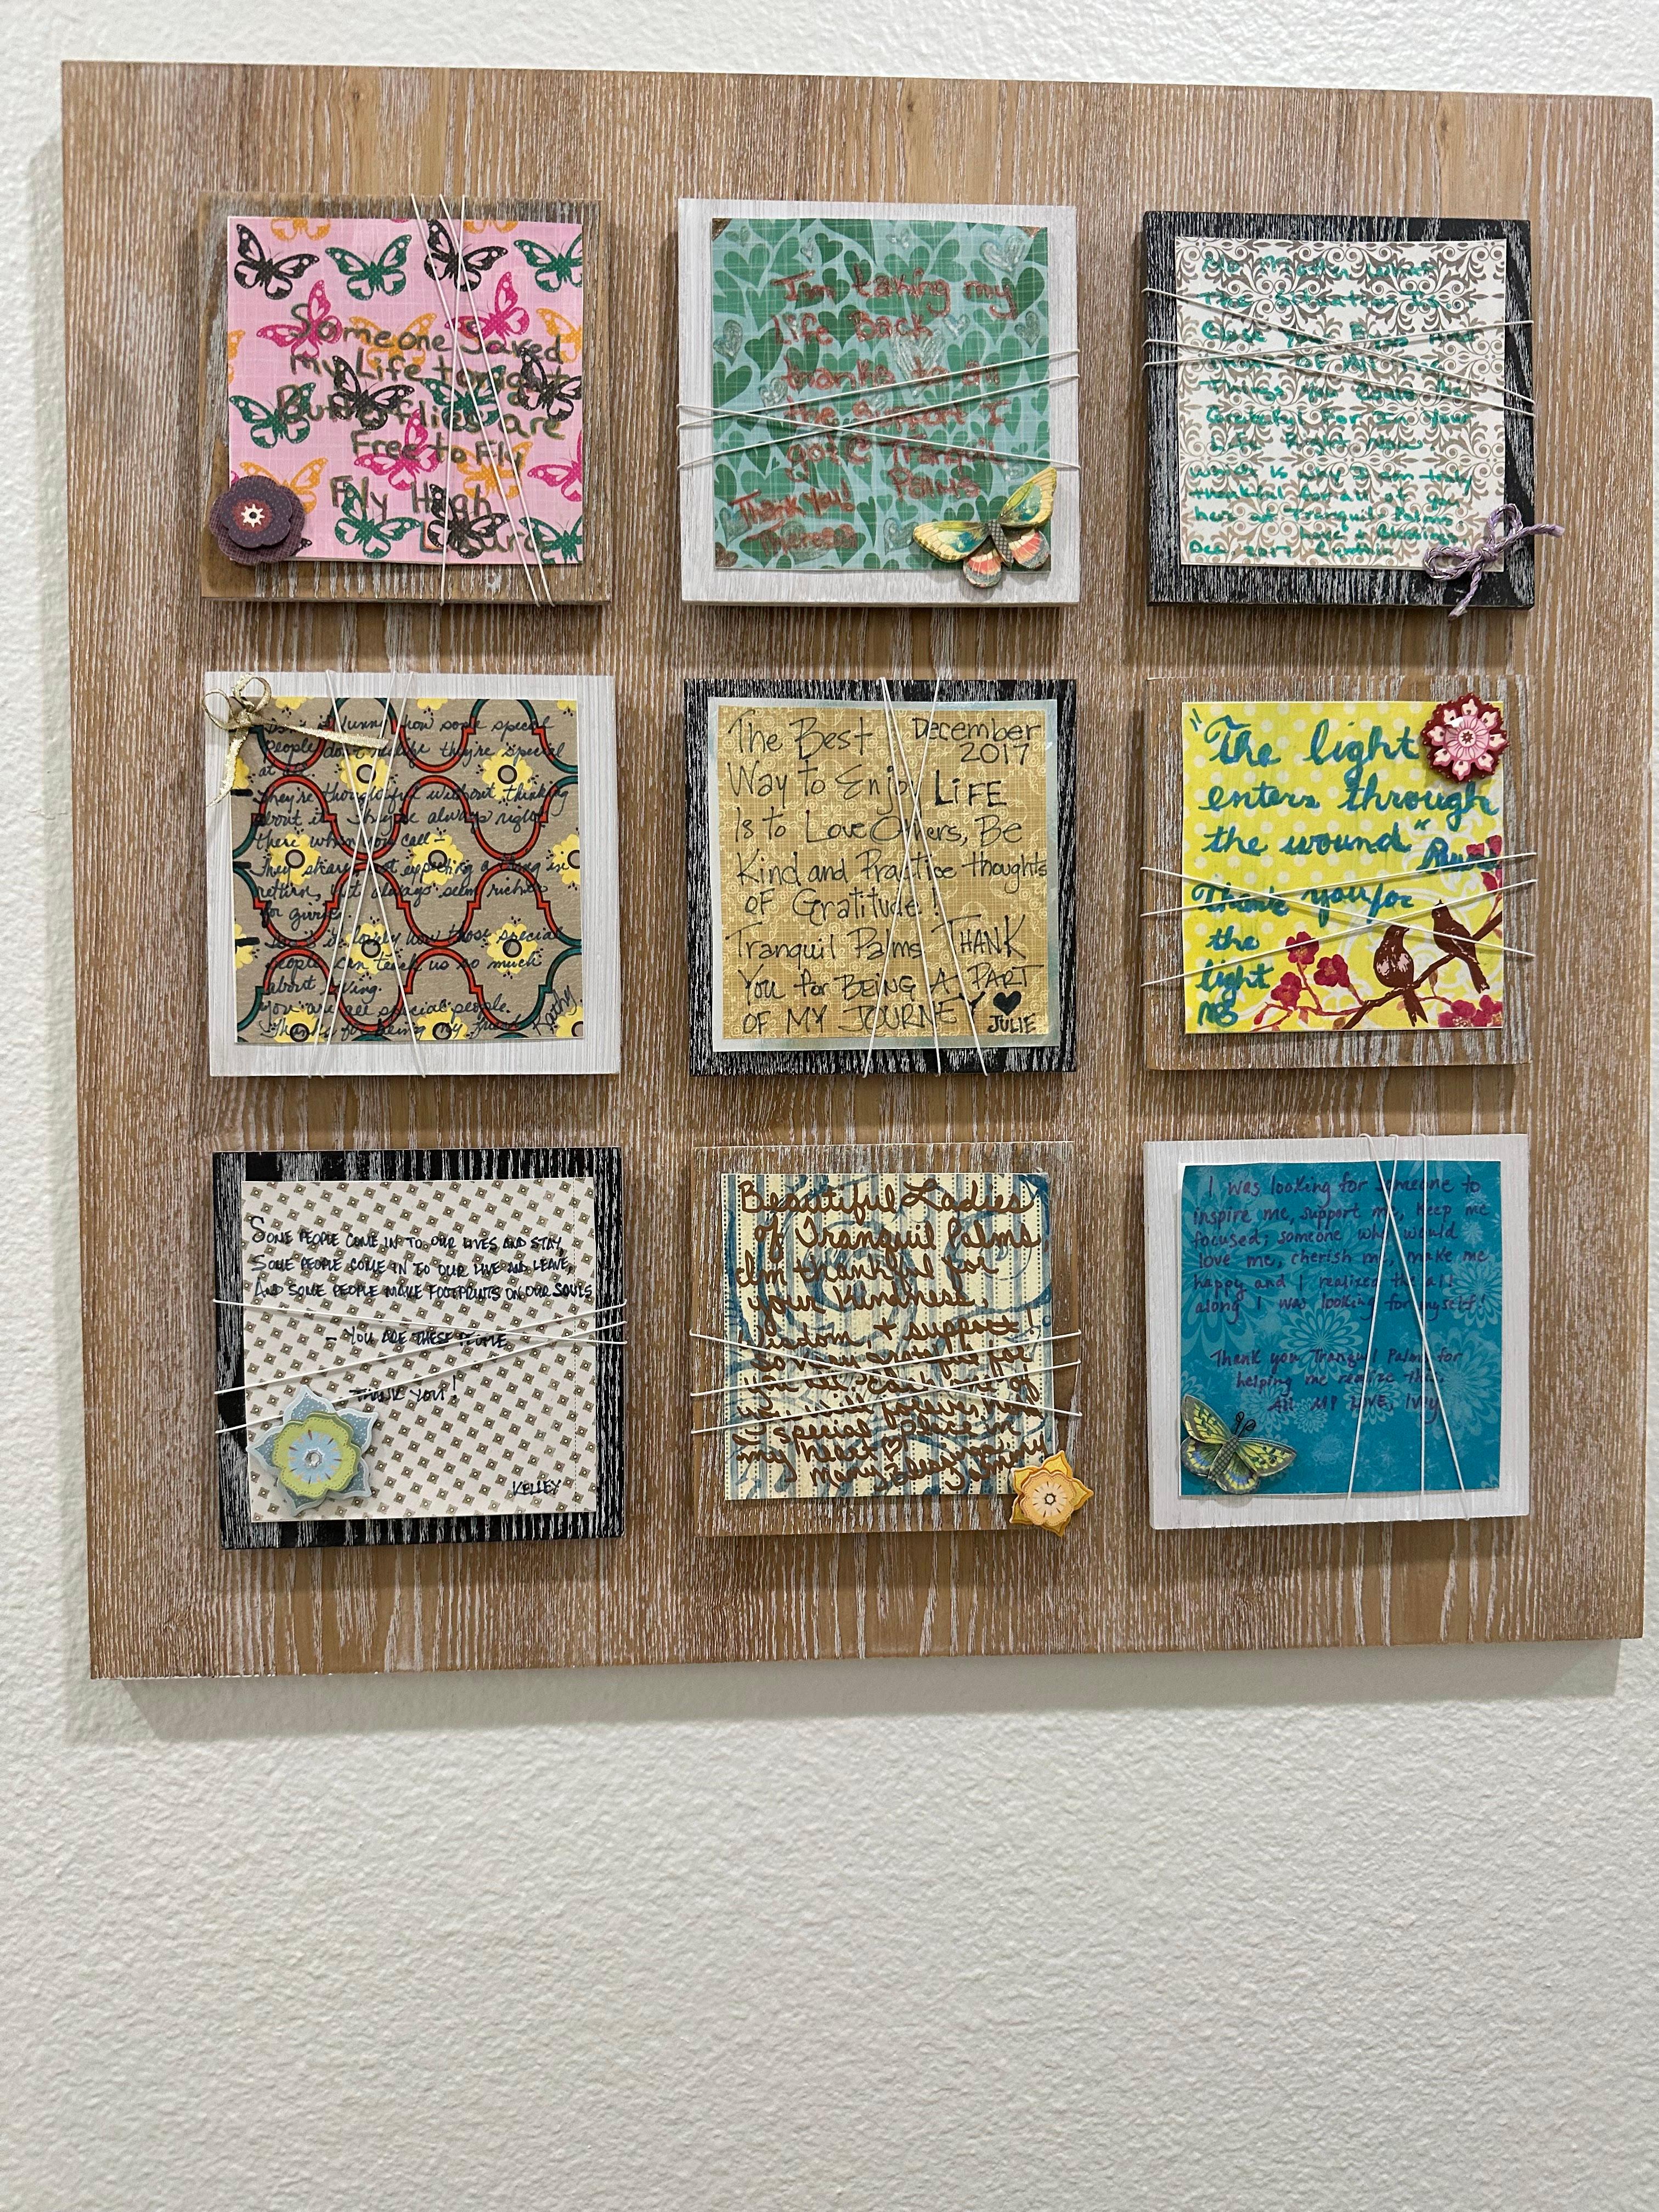 Someone Saved
my Life tonight
Butterflies are
Free to Fly
Fly High
I'm taking my
Life Back
thanks to all
the support I
got @ Tranquil
Palms
Thank you!
Theresa
No Matter What
The Situation Is
Close Your Eyes And
Think Of All The
Things You Could Be
Grateful For In Your
Life Right Now
Which is why I am truly
thankful for all of you
here at Tranquil Palms.
Love & Blessings,
Dec. 2017
Isn't it funny how some special
people don't realize they're special
at all.
They're thoughtful without thinking
about it. They're always right
there when you call—
They share not expecting a thing in
return, yet always seem richer
for giving.
Isn't it lovely how those special
people can teach us so much
about living.
You are all special people.
Thanks for being my friend Kathy
The Best December
2017
Way to Enjoy LIFE
Is to Love Others, Be
Kind and Practice thoughts
OF Gratitude!
Tranquil Palms THANK
You for BEING A PART
OF MY JOURNEY
JULIE
"The light
enters through
the wound" Rumi
Thank you for
the
light
SOME PEOPLE COME IN TO OUR LIVES AND STAY,
SOME PEOPLE COME IN TO OUR LIVE AND LEAVE,
AND SOME PEOPLE MAKE FOOTPRINTS ON OUR SOULS
- YOU ARE THESE PEOPLE
THANK YOU!
KELLEY
Beautiful Ladies
of Tranquil Palms
I'm thankful for
your kindness,
wisdom + support!
So very grateful for
you all. Each one of
you will forever have
a special place in
my heart
Many Blessings
I was looking for someone to
inspire me, support me, keep me
focused; someone who would
love me, cherish me, make me
happy and I realized the all
along I was looking for myself!
Thank you Tranquil Palms for
helping me realize this
All My LOVE, Ivey